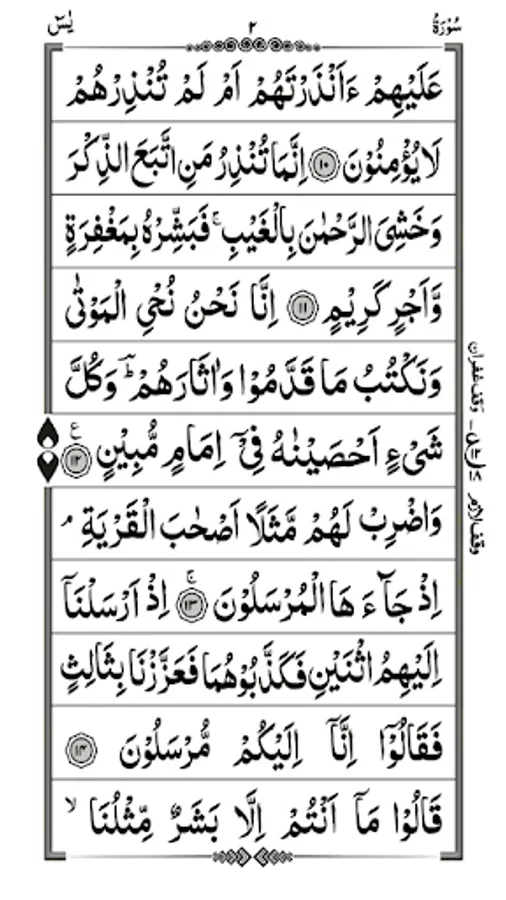 سُوْرَةُ ٢ يٰسٓ
عَلَيْهِمْ ءَاَنْذَرْتَهُمْ اَمْ لَمْ تُنْذِرْهُمْ
لَا يُؤْمِنُوْنَ ۝١٠ اِنَّمَا تُنْذِرُ مَنِ اتَّبَعَ الذِّكْرَ
وَخَشِيَ الرَّحْمٰنَ بِالْغَيْبِ ۚ فَبَشِّرْهُ بِمَغْفِرَةٍ
وَّاَجْرٍ كَرِيْمٍ ۝١١ اِنَّا نَحْنُ نُحْيِ الْمَوْتٰى
وَنَكْتُبُ مَا قَدَّمُوْا وَاٰثَارَهُمْ ؕ وَكُلَّ
شَيْءٍ اَحْصَيْنٰهُ فِيْٓ اِمَامٍ مُّبِيْنٍ ۝١٢ ع
وَاضْرِبْ لَهُمْ مَّثَلًا اَصْحٰبَ الْقَرْيَةِ ۘ
اِذْ جَآءَهَا الْمُرْسَلُوْنَ ۝١٣ ۚ اِذْ اَرْسَلْنَآ
اِلَيْهِمُ اثْنَيْنِ فَكَذَّبُوْهُمَا فَعَزَّزْنَا بِثَالِثٍ
فَقَالُوْٓا اِنَّآ اِلَيْكُمْ مُّرْسَلُوْنَ ۝١٤
قَالُوْا مَآ اَنْتُمْ اِلَّا بَشَرٌ مِّثْلُنَا ۙ
وقف غفران
وقف لازم